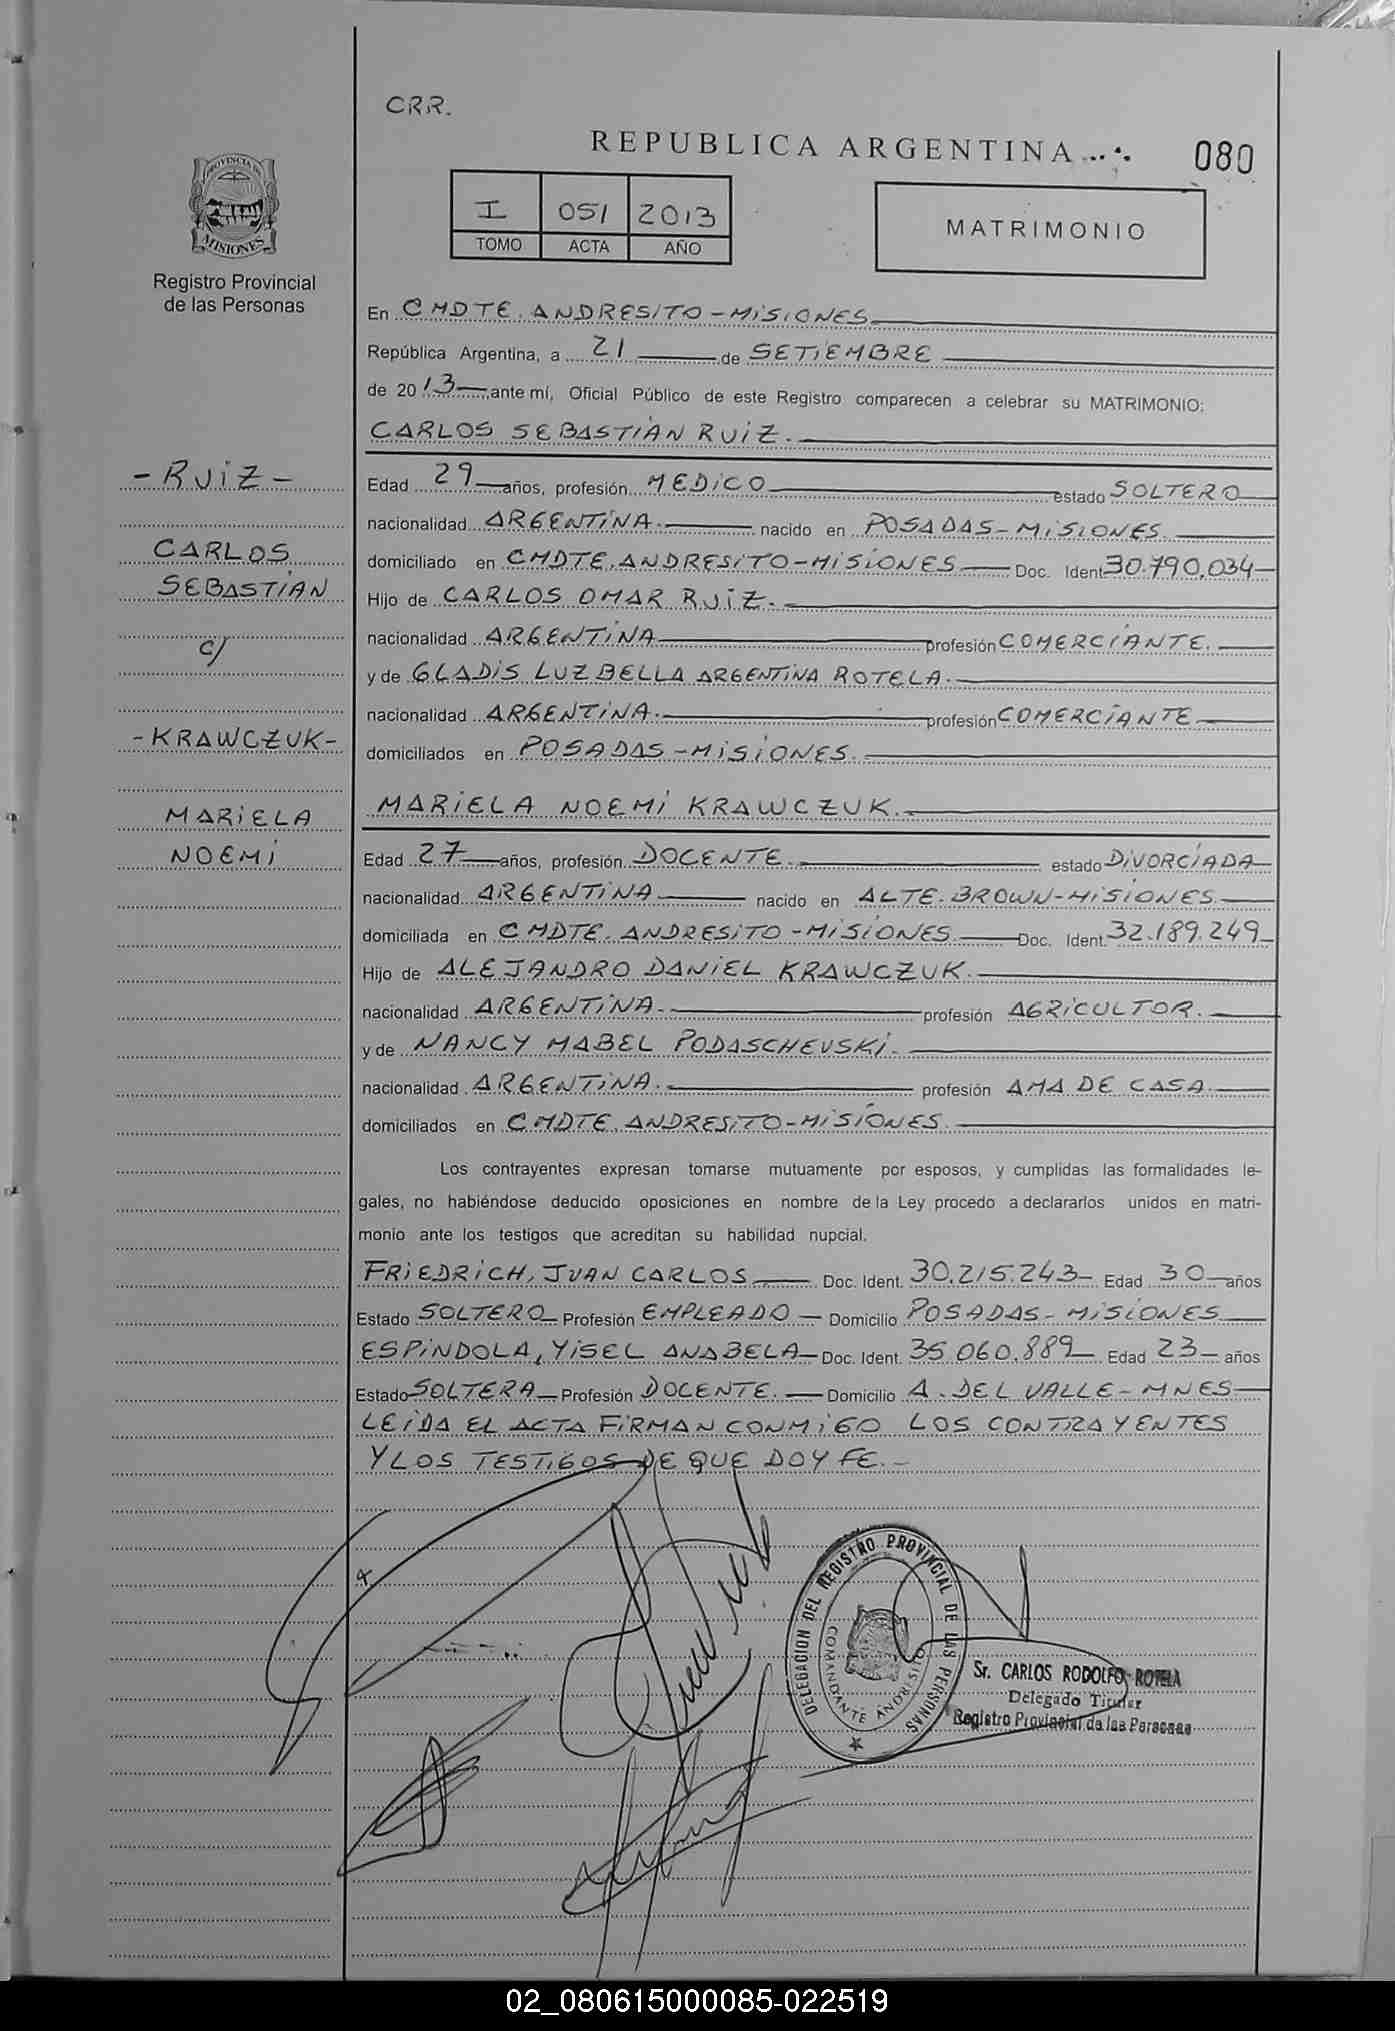 CRR.
REPUBLICA ARGENTINA
080
PROVINCIA DE
MISIONES
Registro Provincial
de las Personas
I 051 2013
TOMO ACTA AÑO
MATRIMONIO
En CMDTE. ANDRESITO - MISIONES
República Argentina, a 21 de SETIEMBRE
de 2013 ante mí, Oficial Público de este Registro comparecen a celebrar su MATRIMONIO:
CARLOS SEBASTIAN RUIZ.
- RUIZ -
CARLOS
SEBASTIAN
c/
- KRAWCZUK -
MARIELA
NOEMI
Edad 29 años, profesión MEDICO estado SOLTERO
nacionalidad ARGENTINA. nacido en POSADAS - MISIONES.
domiciliado en CMDTE. ANDRESITO - MISIONES Doc. Ident. 30.790.034
Hijo de CARLOS OMAR RUIZ.
nacionalidad ARGENTINA profesión COMERCIANTE.
y de GLADIS LUZ BELLA ARGENTINA ROTELA.
nacionalidad ARGENTINA. profesión COMERCIANTE
domiciliados en POSADAS - MISIONES.
MARIELA NOEMI KRAWCZUK.
Edad 27 años, profesión DOCENTE. estado DIVORCIADA
nacionalidad ARGENTINA nacido en ALTE. BROWN - MISIONES
domiciliada en CMDTE. ANDRESITO - MISIONES Doc. Ident. 32.189.249
Hijo de ALEJANDRO DANIEL KRAWCZUK.
nacionalidad ARGENTINA. profesión AGRICULTOR.
y de NANCY MABEL PODASCHEVSKI.
nacionalidad ARGENTINA. profesión AMA DE CASA.
domiciliados en CMDTE. ANDRESITO - MISIONES.
Los contrayentes expresan tomarse mutuamente por esposos, y cumplidas las formalidades le-
gales, no habiéndose deducido oposiciones en nombre de la Ley procedo a declararlos unidos en matri-
monio ante los testigos que acreditan su habilidad nupcial.
FRIEDRICH, JUAN CARLOS Doc. Ident. 30.215.243 Edad 30 años
Estado SOLTERO Profesión EMPLEADO Domicilio POSADAS - MISIONES
ESPINDOLA, YISEL ANABELA Doc. Ident. 35.060.889 Edad 23 años
Estado SOLTERA Profesión DOCENTE. Domicilio A. DEL VALLE - MNES
LEIDA EL ACTA FIRMAN CONMIGO LOS CONTRAYENTES
Y LOS TESTIGOS DE QUE DOY FE. -
DELEGACION DEL REGISTRO PROVINCIAL DE LAS PERSONAS
COMANDANTE ANDRESITO
Sr. CARLOS RODOLFO ROTELA
Delegado Titular
Registro Provincial de las Personas
02_080615000085-022519